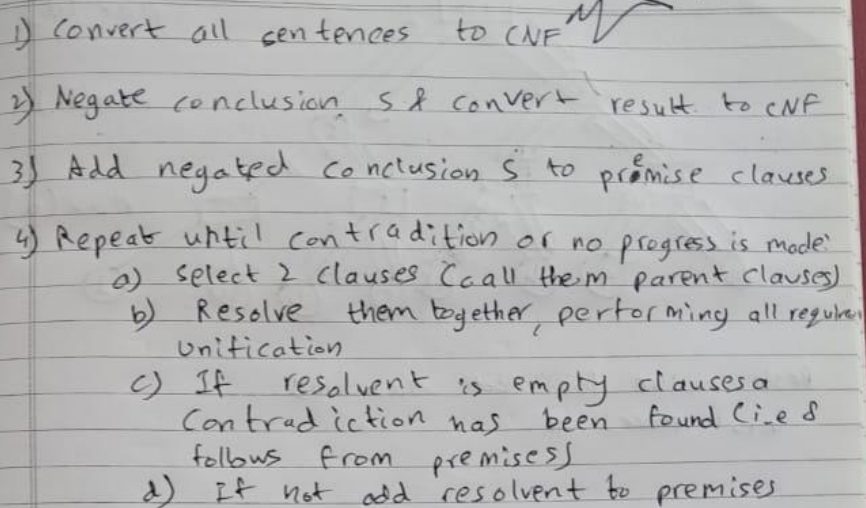 1) Convert all sentences to CNF
2) Negate conclusion S & convert result to CNF
3) Add negated conclusion S to premise clauses
4) Repeat until contradition or no progress is made:
a) select 2 clauses (call them parent clauses)
b) Resolve them together, performing all require
unification
c) If resolvent is empty clauses a
contradiction has been found (i.e S
follows from premises)
d) If not add resolvent to premises